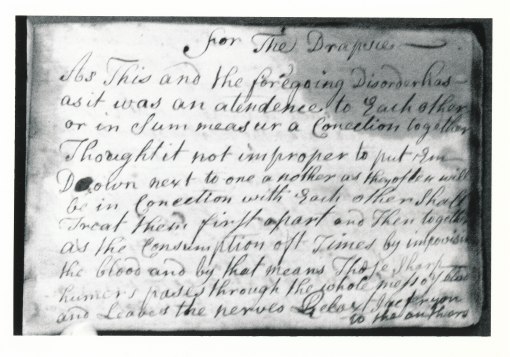 For The Drapsie
As This and the foregoing Disorder has
as it was an atendence to Each other
or in Sum measur a Conection together
Thought it not improper to put Em
Down next to one another as they often will
be in Conection with Each other Shall
Treat them first apart and Then together
as the Consumption oft Times by
the blood and by that means Those Sharp
humers pases through the whole mess of
and Leaves the nerves
to the